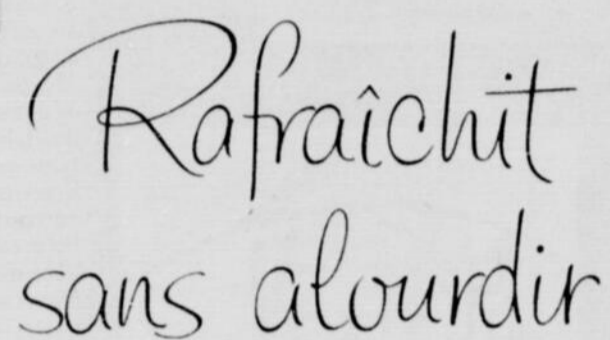 Rafraîchit
sans alourdir